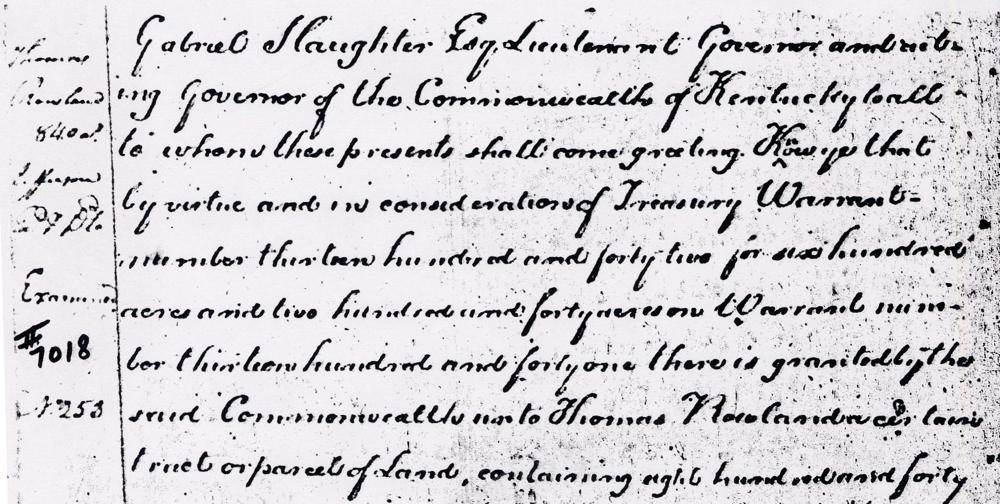 Thomas
Rowland
840 a.
Jefferson
Examined
#7018
No 253
Gabriel Slaughter Esq. Lieutenant Governor and act-
ing Governor of the Commonwealth of Kentucky to all
to whom these presents shall come greeting. Know ye that
by virtue and in consideration of Treasury Warrant=
number thirteen hundred and forty two for six hundred
acres and two hundred and forty acres on Warrant num-
ber thirteen hundred and forty one there is granted by the
said Commonwealth unto Thomas Rowland a certain
tract or parcel of Land, containing eight hundred and forty